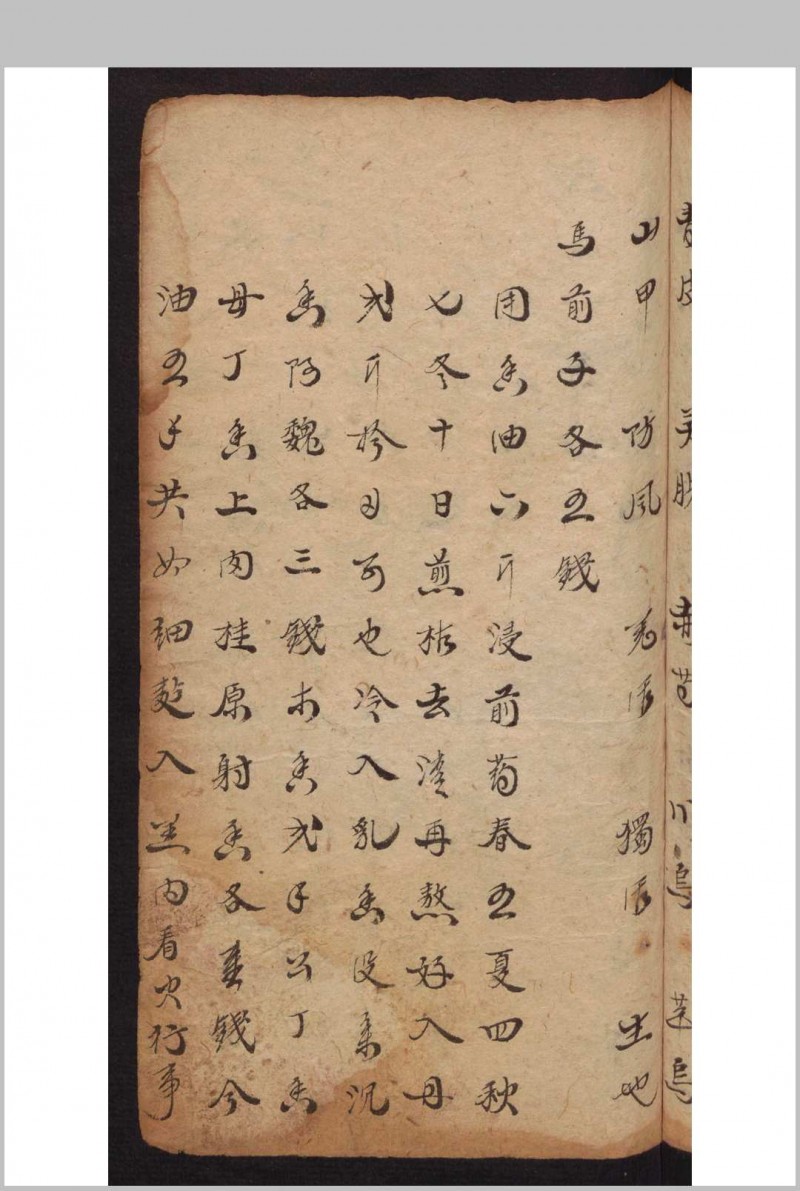 青皮 川烏 草烏
山甲 防風 羌活 獨活 生地
馬前子各五錢
用香油六斤浸前药春五夏四秋
七冬十日煎枯去渣再熬好入丹
弍斤 可也冷入乳香没藥沉
香阿魏各三錢木香弍 公丁香
母丁香上肉桂原射香各 錢
油五 共 細 入 内看火行事